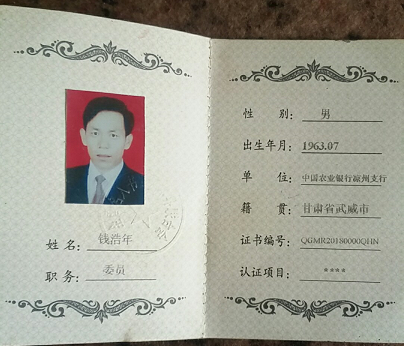 姓名：钱浩年
职务：委员
性 别：男
出生年月：1963.07
单 位：中国农业银行凉州支行
籍 贯：甘肃省武威市
证书编号：QGMR20180000QHN
认证项目：****